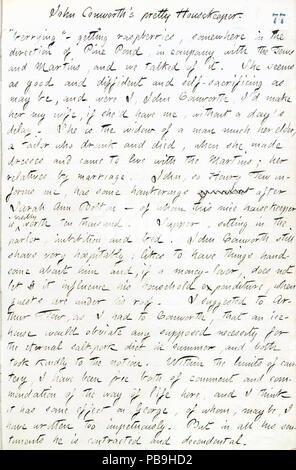 John Conworth's pretty Housekeeper. 77
"berrying" - getting raspberries, somewhere in the
direction of Pine Pond, in company with the Tews
and Martins and we talked of it. She seems
as good and diffident and self-sacrificing as
may be, and were I John Conworth I'd make
her my wife, if she'd have me, without a day's
delay. She is the widow of a man much her elder,
a tailor who drank and died, when she made
dresses and came to live with the Martins; her
relatives by marriage. John, so Harry Tew in-
forms me, has some hankerings after
Sarah Ann Bolton - of whom this nice housekeeper
is worth ten thousand. Supper, sitting in the
parlor, and bed. John Conworth still
shows very hospitably; likes to have things hand-
some about him and, if a money-lover, does not
let it influence his household expenditure, when
guests are under his roof. I suggested to Ar-
thur Tew, as I had to Conworth, that an ice-
house would obviate any supposed necessity for
the eternal salt pork diet in summer and both
took kindly to the notion. Within the limits of cour-
tesy, I have been free both of comment and com-
mendation of the way of life here, and I think
it has some effect on George, of whom, maybe, I
have written too impetuously. But in all his sen-
timents he is contracted and